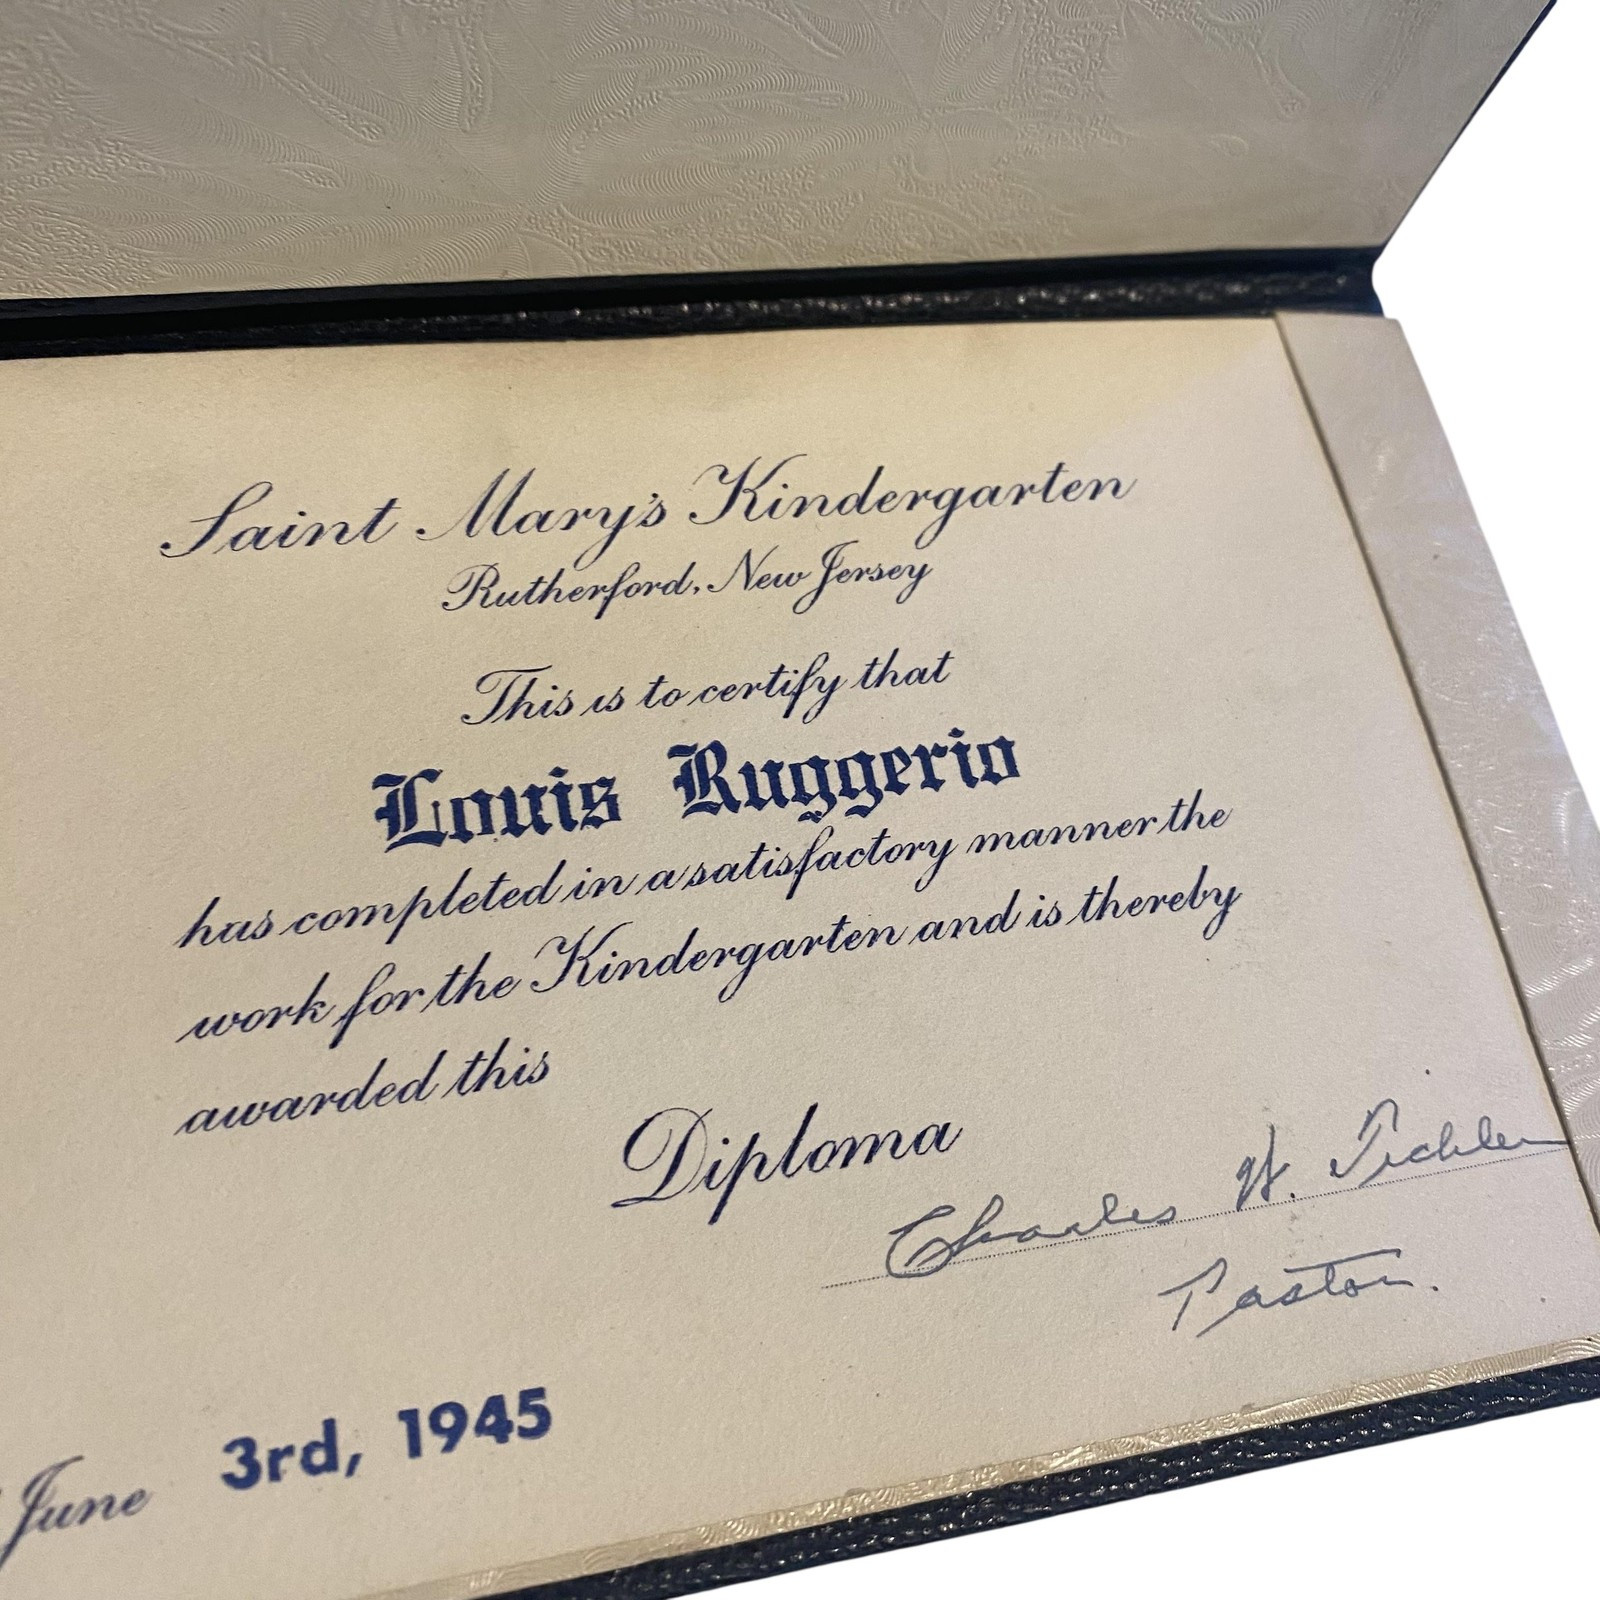 Saint Mary's Kindergarten
Rutherford, New Jersey
This is to certify that
Louis Ruggerio
has completed in a satisfactory manner the
work for the Kindergarten and is thereby
awarded this
Diploma
Charles W. Tichler
Pastor.
June 3rd, 1945